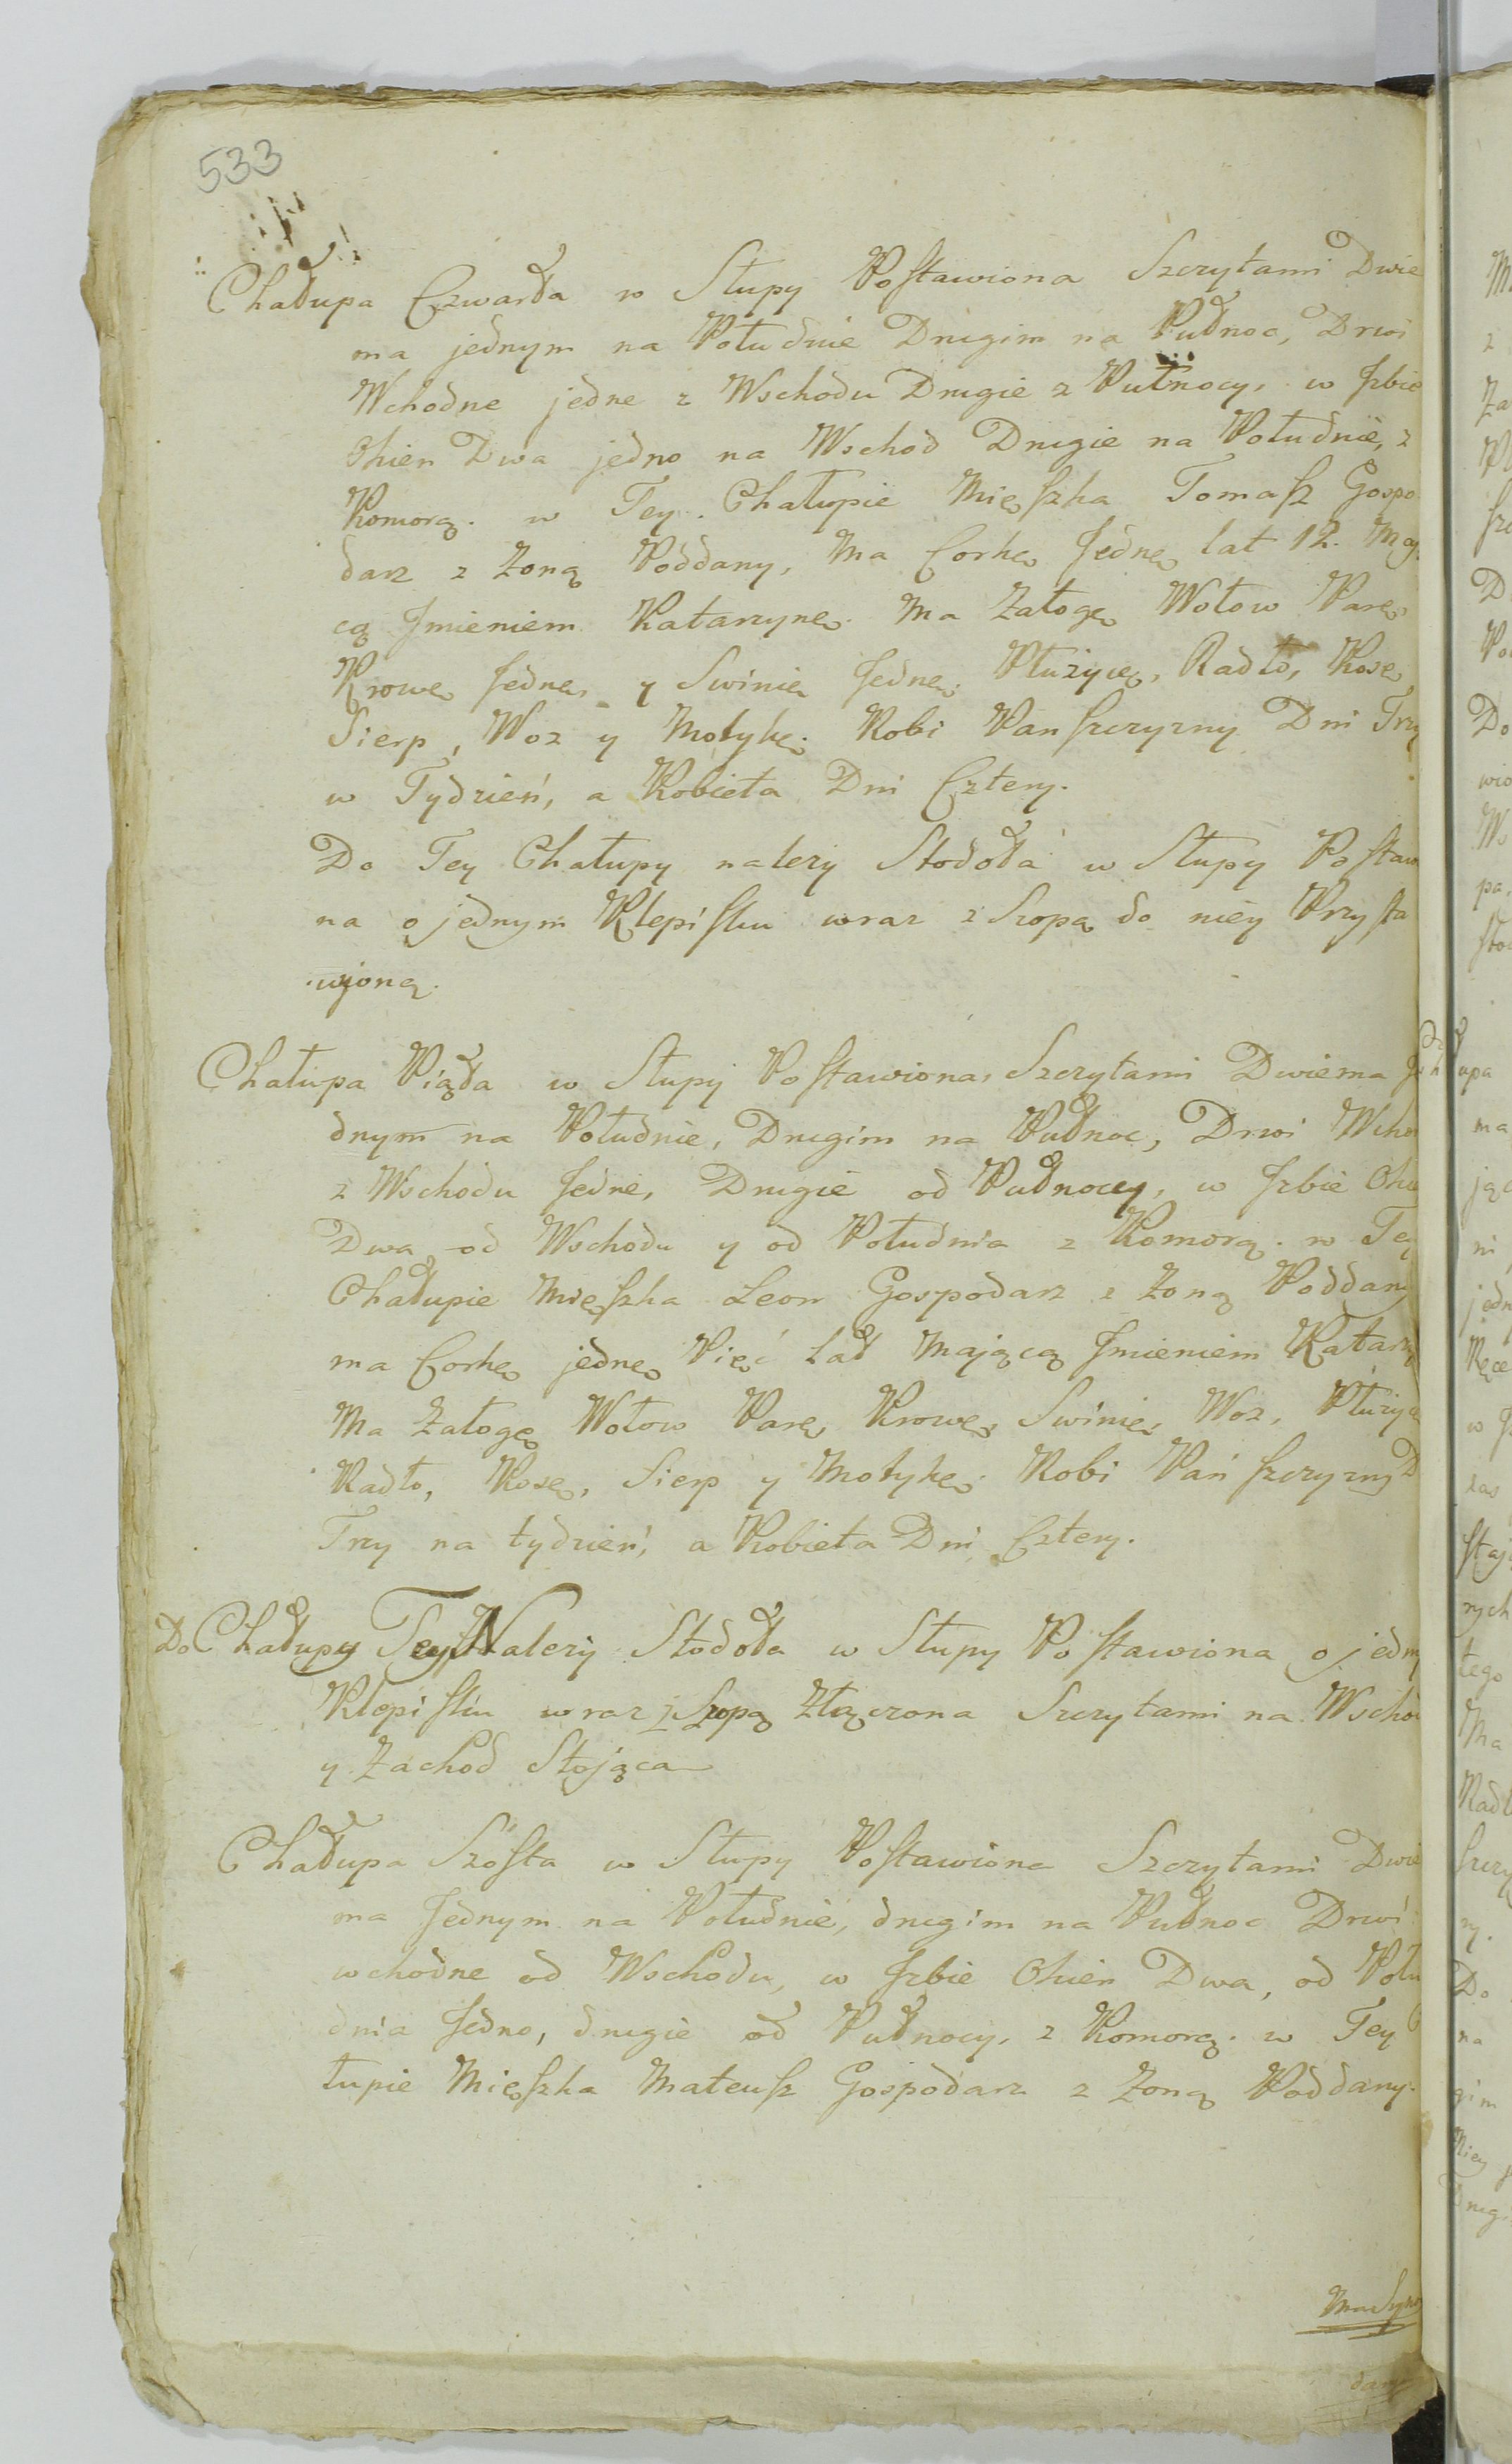 533
Chałupa Czwarta w Słupy Postawiona Szczytami Dwie
ma jednym na Południe Drugim na Pułnoc, Drzwi
Wchodne jedne z Wschodu Drugie z Pułnocy, w Jzbie
Okien Dwa jedno na Wschod Drugie na Południe, z
Komorą. w Tey Chałupie Mięszka Tomasz Gospo
darz z Zoną Poddany, Ma Corkę Jednę lat 12. Maj
cą Jmieniem Katarzynę. Ma Załogę Wołow Parę,
Krowę Jednę, y Swinię Jednę, Płużycę, Radło, Kosę
Sierp, Woz y Motykę. Robi Panszczyzny Dni Trzy
w Tydzień, a Kobieta Dni Cztery.
Do Tey Chałupy nalezy Stodoła w Słupy Postaw
na o jednym Klepisku wraz z Szopą do niey Przysta
wioną.
Chałupa Piąta w Słupy Postawiona, Szczytami Dwiema Je
dnym na Południe, Drugim na Pułnoc, Drzwi Wcho
z Wschodu Jedne, Drugie od Pułnocy, w Jzbie Okie
Dwa od Wschodu y od Południa z Komorą. w Tey
Chałupie Mięszka Leon Gospodarz z Zoną Poddany
ma Corkę jednę Pięć Lat Mającą Jmieniem Katarzy
Ma Załogę Wołow Parę, Krowę, Swinię, Woz, Płużyc
Radło, Kosę, Sierp y Motykę. Robi Pańszczyzny D
Trzy na tydzień, a Kobieta Dni Cztery.
Do Chałupy Tey Nalezy Stodoła w Słupy Postawiona o jedny
Klepisku wraz z Szopą Złączona Szczytami na Wscho
y Zachod Stojąca
Chałupa Szósta w Słupy Postawiona Szczytami Dwie
ma Jednym na Południe, drugim na Pułnoc Drzwi
wchodne od Wschodu, w Jzbie Okien Dwa, od Połu
dnia Jedno, drugie od Pułnocy, z Komorą. w Tey C
łupie Mięszka Mateusz Gospodarz z Zoną Poddany.
Ma Syna